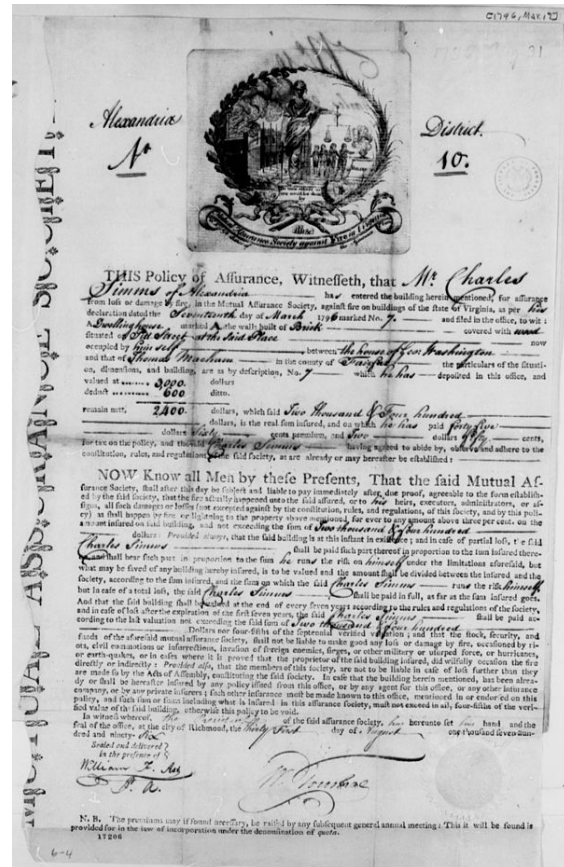 [1796, Mar. 17]
31
Alexandria District.
No 10.
Mutual Assurance Society against Fire in
MUTUAL ASSURANCE SOCIETY
THIS Policy of Assurance, Witnesseth, that Mr. Charles
Simms of Alexandria has entered the building herein mentioned, for assurance
from loss or damage by fire, in the Mutual Assurance Society, against fire on buildings of the state of Virginia, as per his
declaration dated the Seventeenth day of March 1796 marked No. 7. and filed in the office, to wit:
a Dwelling house marked A the walls built of Brick covered with wood
situated on Pitt Street at the said Place now
occupied by himself between the house of Gen: Washington
and that of Thomas in the county of Fairfax the particulars of the situati-
on, dimensions, and building, are as by description, No. 7 which he has deposited in this office, and
valued at 3,000 dollars
deduct 600 ditto.
remain nett. 2,400 dollars, which said Two thousand & Four hundred
dollars, is the real sum insured, and on which he has paid forty five
dollars Sixty cents premium, and Two dollars fifty cents,
for tax on the policy, and the said Charles Simms having agreed to abide by, observe and adhere to the
constitution, rules, and regulations of the said society, as are already or may hereafter be established:
NOW Know all Men by these Presents, That the said Mutual As-
surance Society, shall after this day be subject and liable to pay immediately after, due proof, agreeable to the form establish-
ed by the said society, that the fire actually happened unto the said assured, or to his heirs, executors, administrators, or as-
signs, all such damages or losses (not excepted against by the constitution, rules, and regulations, of this society, and by this poli-
cy) as shall happen by fire or lightening to the property above mentioned, for ever to any amount above three per cent. on the
amount insured on said building, and not exceeding the sum of Two thousand & four hundred
dollars: Provided always, that the said building is at this instant in existence; and in case of partial loss, the said
Charles Simms shall be paid such part thereof in proportion to the sum insured there-
on, and shall bear such part in proportion to the sum he runs the risk on himself under the limitations aforesaid, but
what may be saved of any building hereby insured, is to be valued and the amount shall be divided between the insured and the
society, according to the sum insured, and the sum on which the said Charles Simms runs the risk himself,
but in case of a total loss, the said Charles Simms shall be paid in full, as far as the sum insured goes.
And that the said building shall be valued at the end of every seven years according to the rules and regulations of the society,
and in case of loss after the expiration of the first seven years, the said Charles Simms shall be paid ac-
cording to the last valuation not exceeding the said sum of Two thousand & four hundred
Dollars nor four-fifths of the septennial verified valuation; and that the stock, security, and
funds of the aforesaid mutual assurance society, shall not be liable to make good any loss or damage by fire, occasioned by ri-
ots, civil commotions or insurrections, invasion of foreign enemies, sieges, or other military or usurped force, or hurricanes,
or earth-quakes, or in cases where it is proved that the proprietor of the said building insured, did wilfully occasion the fire
directly or indirectly: Provided also, that the members of this society, are not to be liable in case of loss further than they
are made so by the Acts of Assembly, constituting the said society. In case that the building herein mentioned, has been alrea-
dy or shall be hereafter insured by any policy issued from this office, or by any agent for this office, or any other insurance
company, or by any private insurers; such other insurance must be made known to this office, mentioned in or endorsed on this
policy, and such sum or sum including what is insured in this assurance society, must not exceed in all, four-fifths of the veri-
fied value of the said building, otherwise this policy to be void.
In witness whereof, the of the said assurance society, has hereunto set his hand and the
seal of the office, at the city of Richmond, the thirty first day of August one thousand seven hun-
dred and ninety-six
Sealed and delivered
in the presence of
William F. Ast
P. A.
N. B. The premium may if found necessary, be raised by any subsequent general annual meeting: This it will be found is
provided for in the law of incorporation under the denomination of quota.
17206
6-4